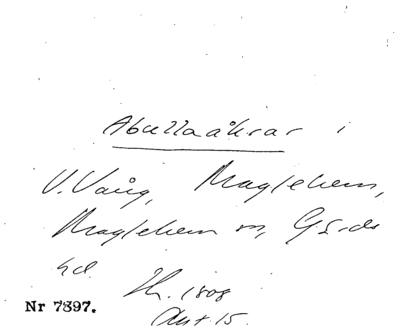 Abullaåkrar i
V. Vång, Maglehem,
Maglehem sn, Gärds
hd. Th. 1808
Akt 15.
Nr 7397.